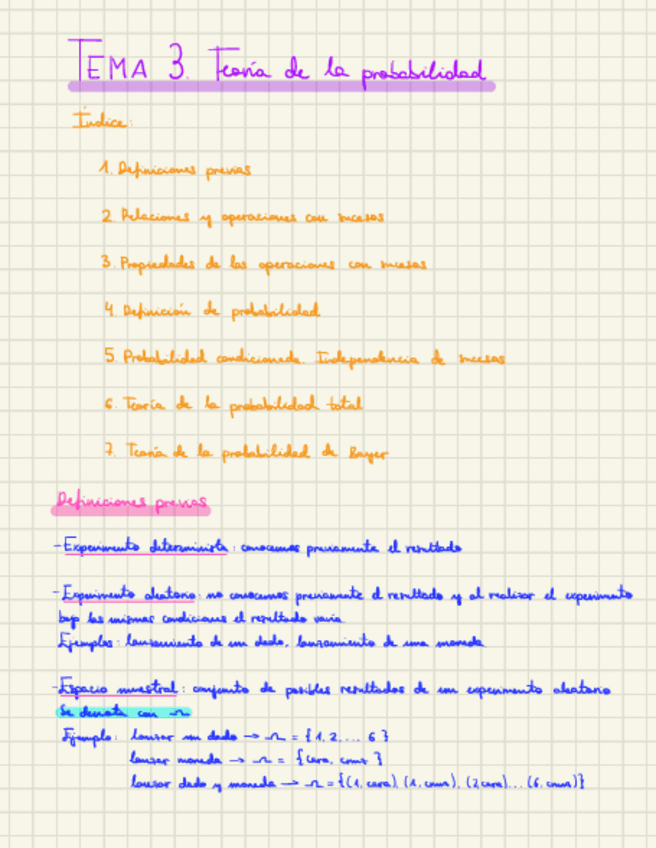 TEMA 3. Teoría de la probabilidad
Índice:
1. Definiciones previas
2. Relaciones y operaciones con sucesos
3. Propiedades de las operaciones con sucesos
4. Definición de probabilidad
5. Probabilidad condicionada. Independencia de sucesos
6. Teoría de la probabilidad total
7. Teoría de la probabilidad de Bayer
Definiciones previas
-Experimento determinista: conocemos previamente el resultado
-Experimento aleatorio: no conocemos previamente el resultado y al realizar el experimento
bajo las mismas condiciones el resultado varía
Ejemplos: lanzamiento de un dado, lanzamiento de una moneda
-Espacio muestral: conjunto de posibles resultados de un experimento aleatorio
Se denota con Ω
Ejemplo: lanzar un dado → Ω = {1, 2, ... 6}
lanzar moneda → Ω = {cara, cruz}
lanzar dado y moneda → Ω = {(1, cara), (1, cruz), (2 cara)... (6, cruz)}